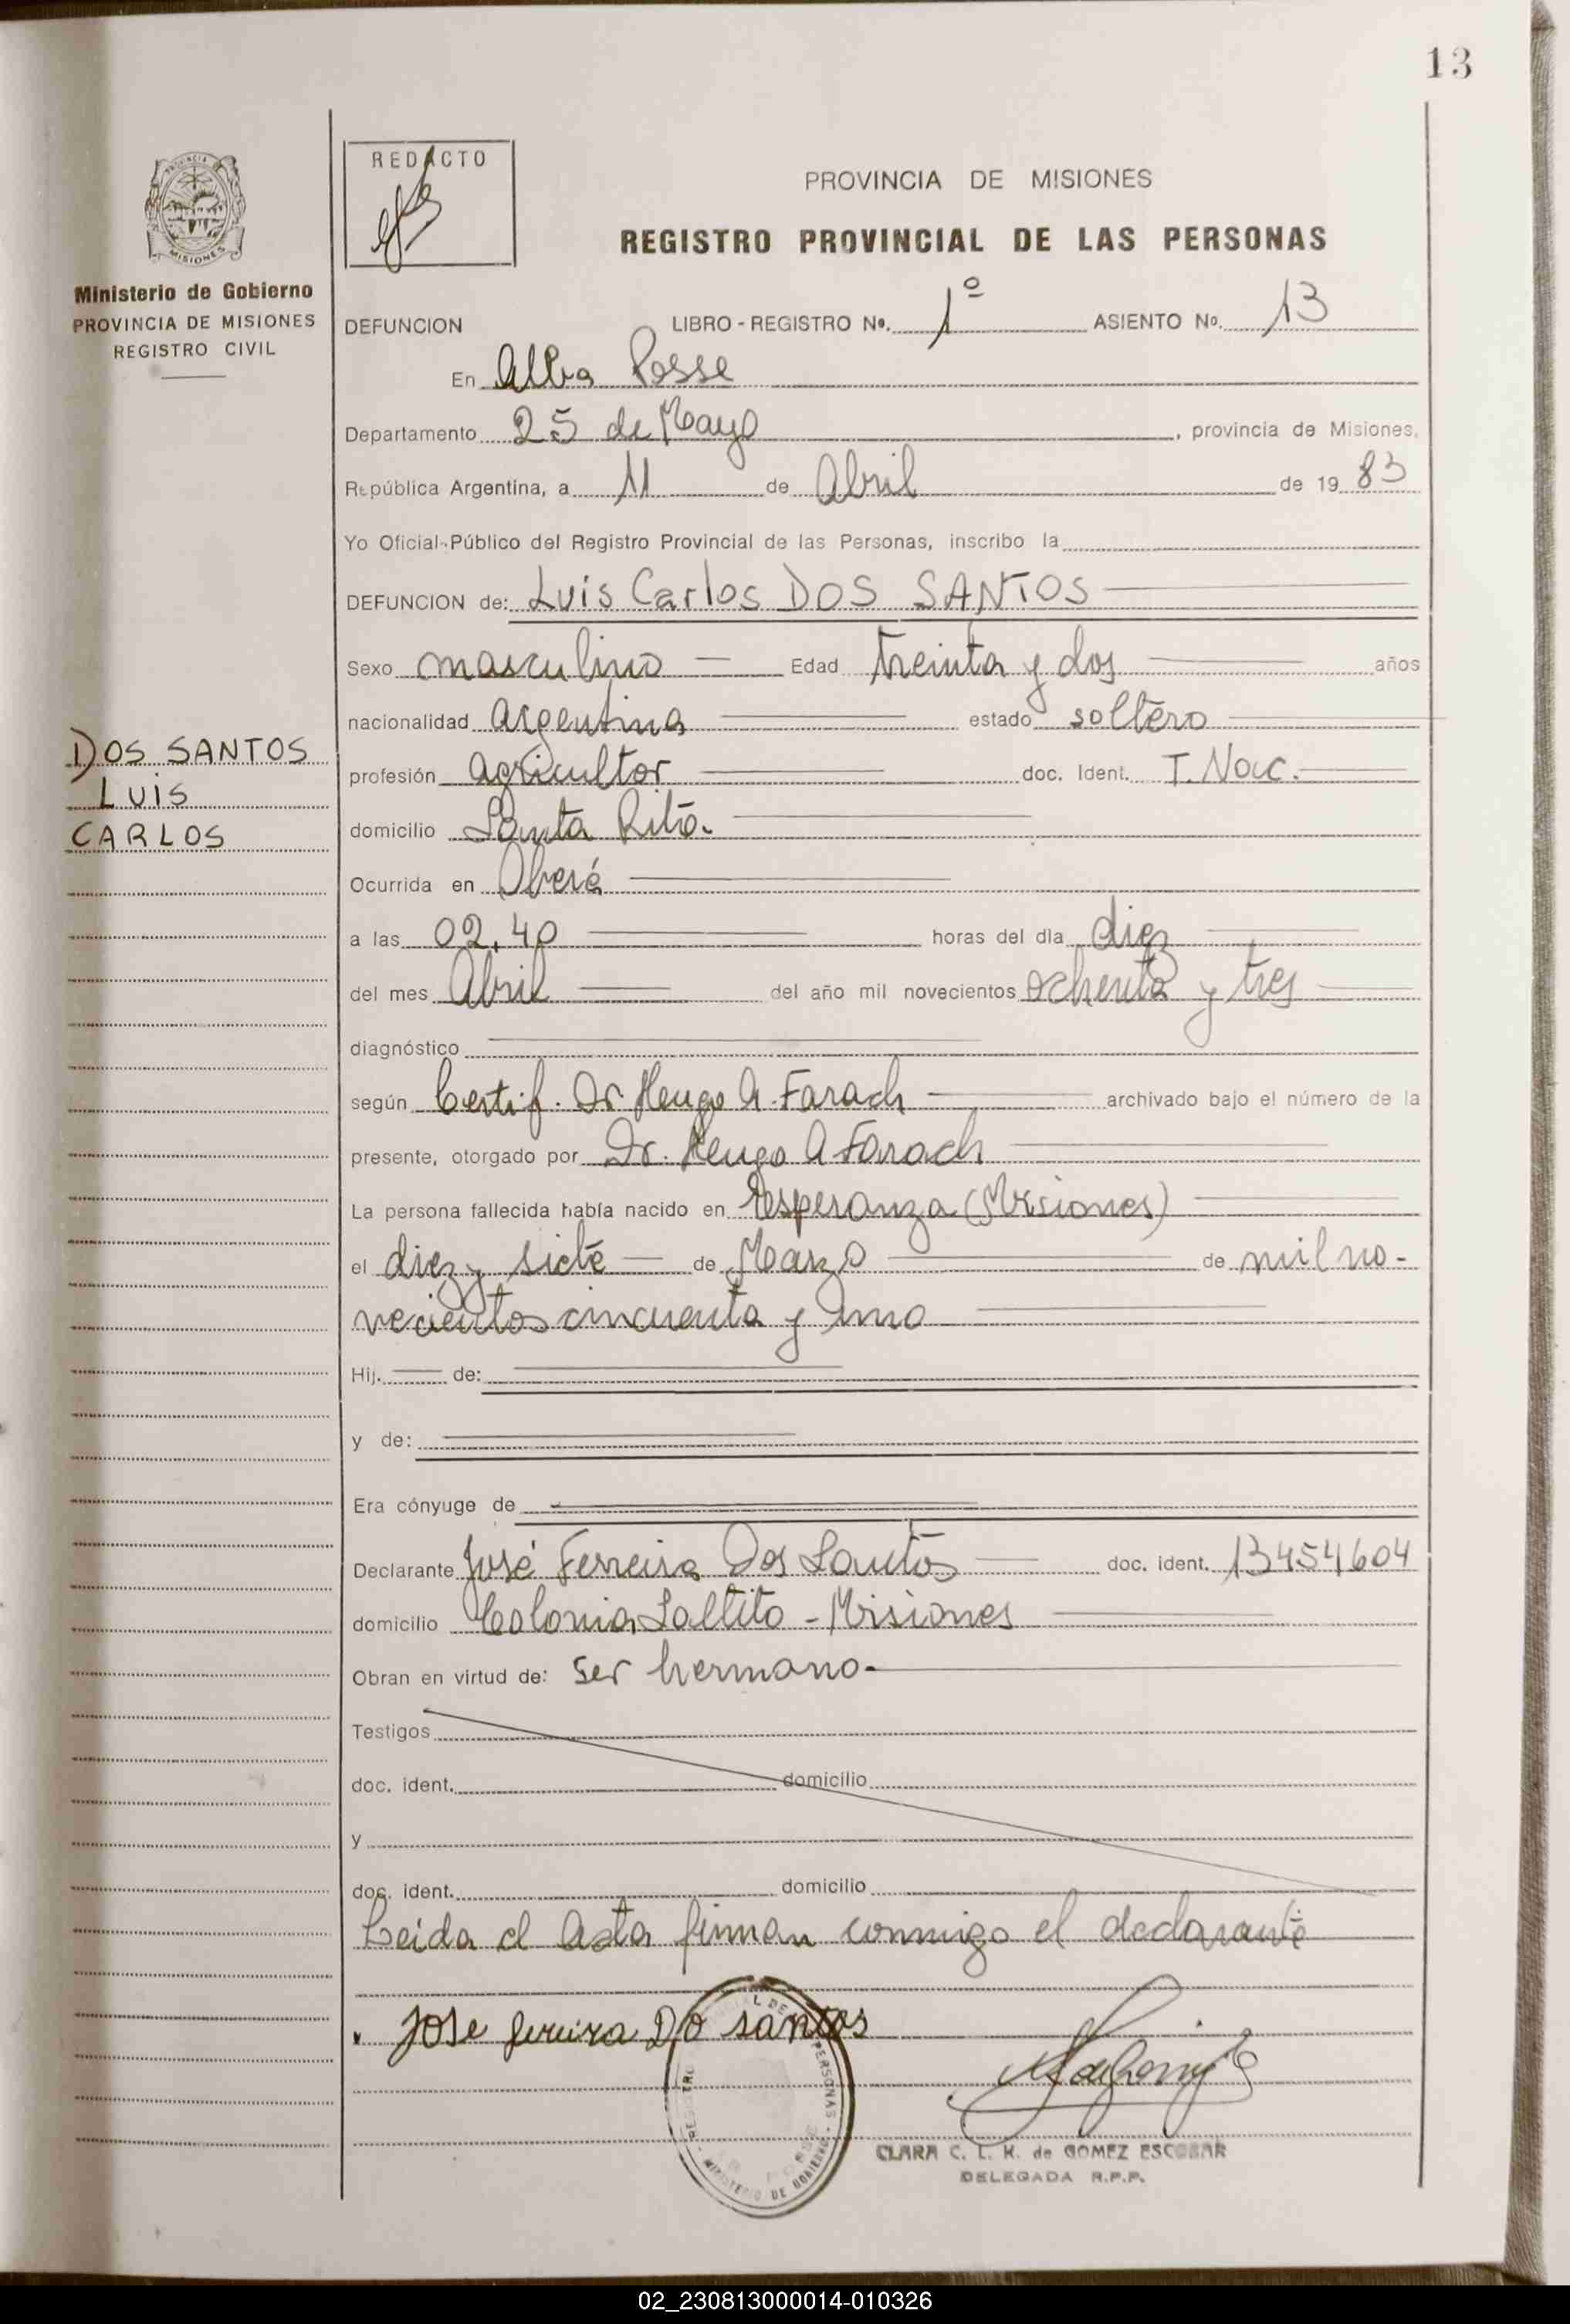 13
REDACTO
PROVINCIA DE MISIONES
REGISTRO PROVINCIAL DE LAS PERSONAS
MISIONES
Ministerio de Gobierno
PROVINCIA DE MISIONES
REGISTRO CIVIL
DEFUNCION LIBRO - REGISTRO No. 1º ASIENTO No. 13
En Alba Posse
Departamento 25 de Mayo, provincia de Misiones,
República Argentina, a 11 de Abril de 19 83
Yo Oficial Público del Registro Provincial de las Personas, inscribo la
DEFUNCION de: Luis Carlos DOS SANTOS
Sexo masculino Edad treinta y dos años
nacionalidad argentina estado soltero
DOS SANTOS
LUIS
CARLOS
profesión agricultor doc. Ident. T. Nac.
domicilio Santa Rita.
Ocurrida en Oberá
a las 02,40 horas del día diez
del mes Abril del año mil novecientos ochenta y tres
diagnóstico
según Certif. Dr. Hugo A. Farach archivado bajo el número de la
presente, otorgado por Dr. Hugo A Farach
La persona fallecida había nacido en Esperanza (Misiones)
el diez y siete de Marzo de mil no-
vecientos cincuenta y uno
Hij. de:
y de:
Era cónyuge de
Declarante José Ferreira Dos Santos doc. ident. 13454604
domicilio Colonia Saltito - Misiones
Obran en virtud de: ser hermano-
Testigos
doc. ident. domicilio
y
doc. ident. domicilio
Leida el Acta firman conmigo el declarante
Jose ferreira DO santos
CLARA C. L. K. de GOMEZ ESCOBAR
DELEGADA R.P.P.
MINISTERIO DE GOBIERNO
02_230813000014-010326